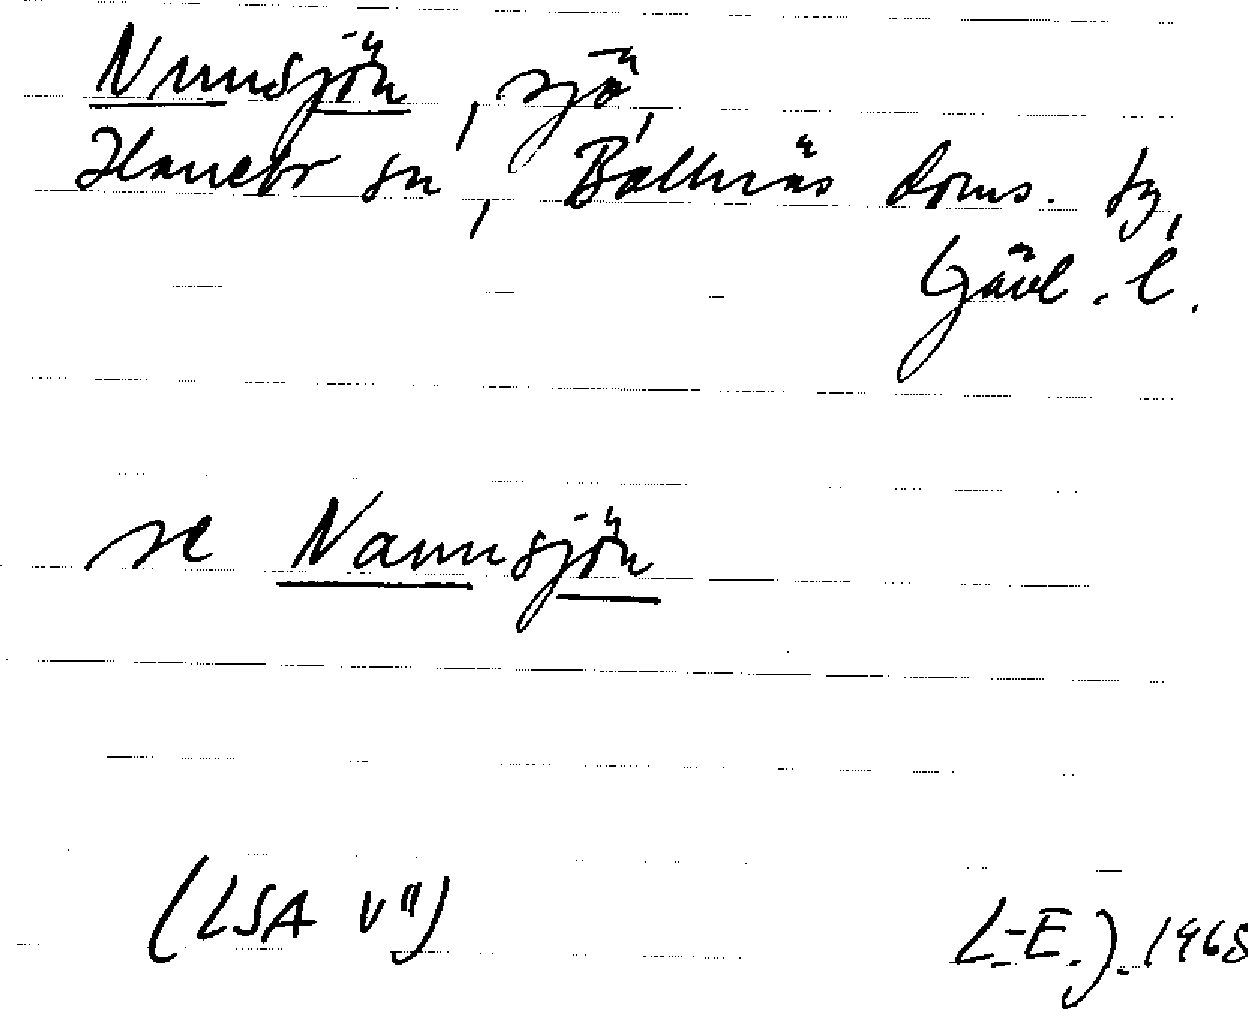 Nunnsjön, sjö,
Hanebo sn, Bollnäs doms. tg,
Gävl. l.
se Nannsjön
(LSA V")
L-E.J. 1968